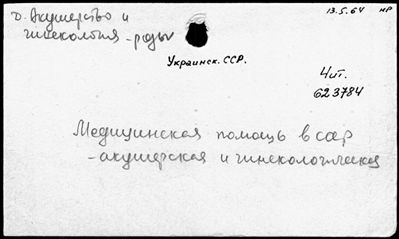 о. Акушерство и
гинекология - роды
13.5.64 нр
Украинск. ССР.
Чит.
623784
Медицинская помощь в ссср
- акушерская и гинекологическая